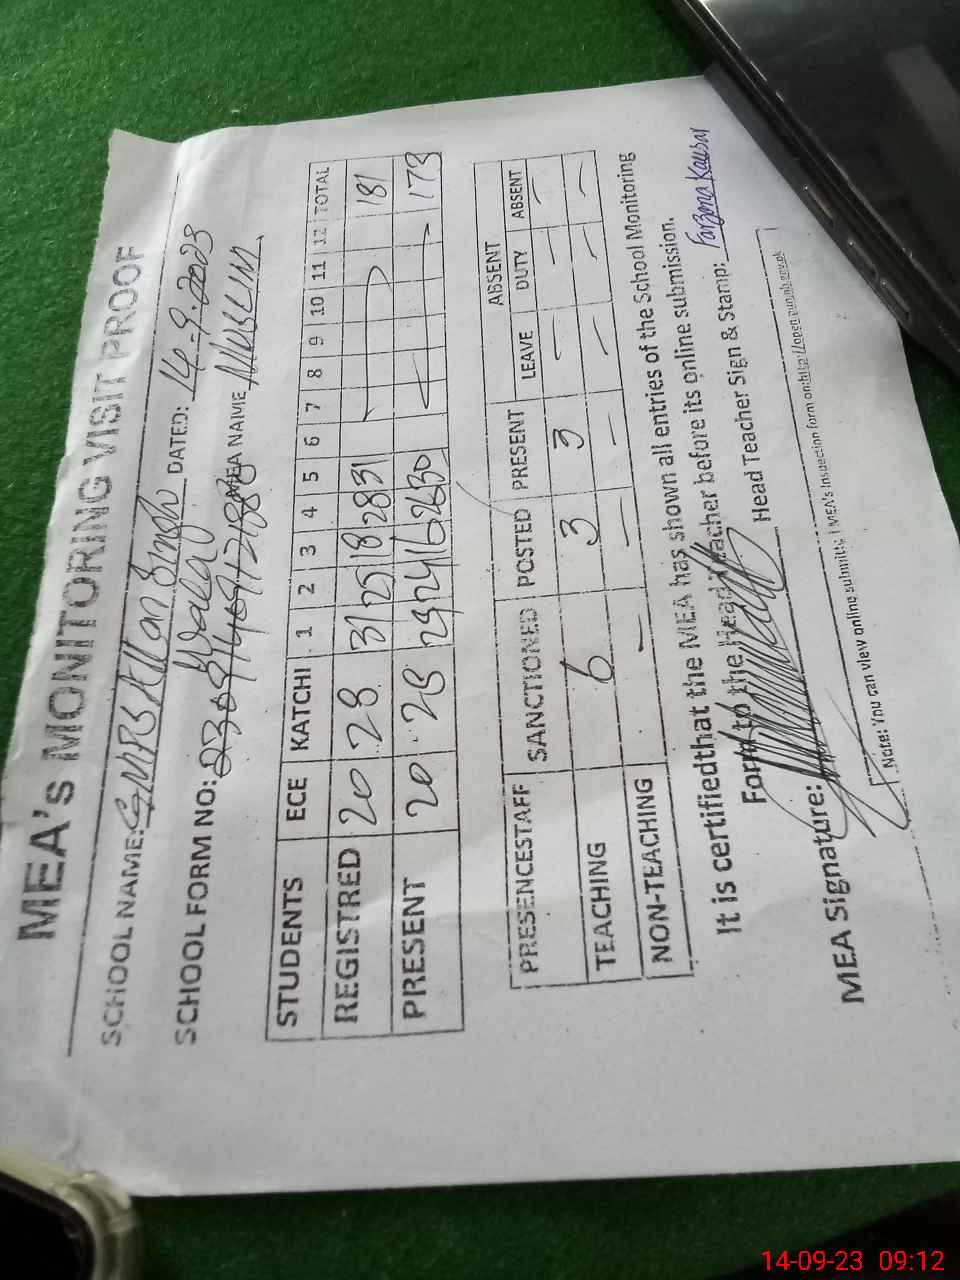 MEA's MONITORING VISIT PROOF
SCHOOL NAME: GMPS DATED: 14-9-2023
SCHOOL FORM NO: MEA NAME MUSLIM
STUDENTS ECE KATCHI 1 2 3 4 5 6 7 8 9 10 11 12 TOTAL
REGISTRED 20 28 31 25 18 28 31 181
PRESENT 20 28 29 24 16 26 30 173
ABSENT
PRESENCESTAFF SANCTIONED POSTED PRESENT LEAVE DUTY ABSENT
TEACHING 6 3 3 – – –
NON-TEACHING – – – – – –
It is certifiedthat the MEA has shown all entries of the School Monitoring
Form to the Head Teacher before its online submission.
MEA Signature: Head Teacher Sign & Stamp: Farzana Kausar
Note: You can view online submitted MEA's inspection form on:http://open.punjab.gov.pk
14-09-23 09:12